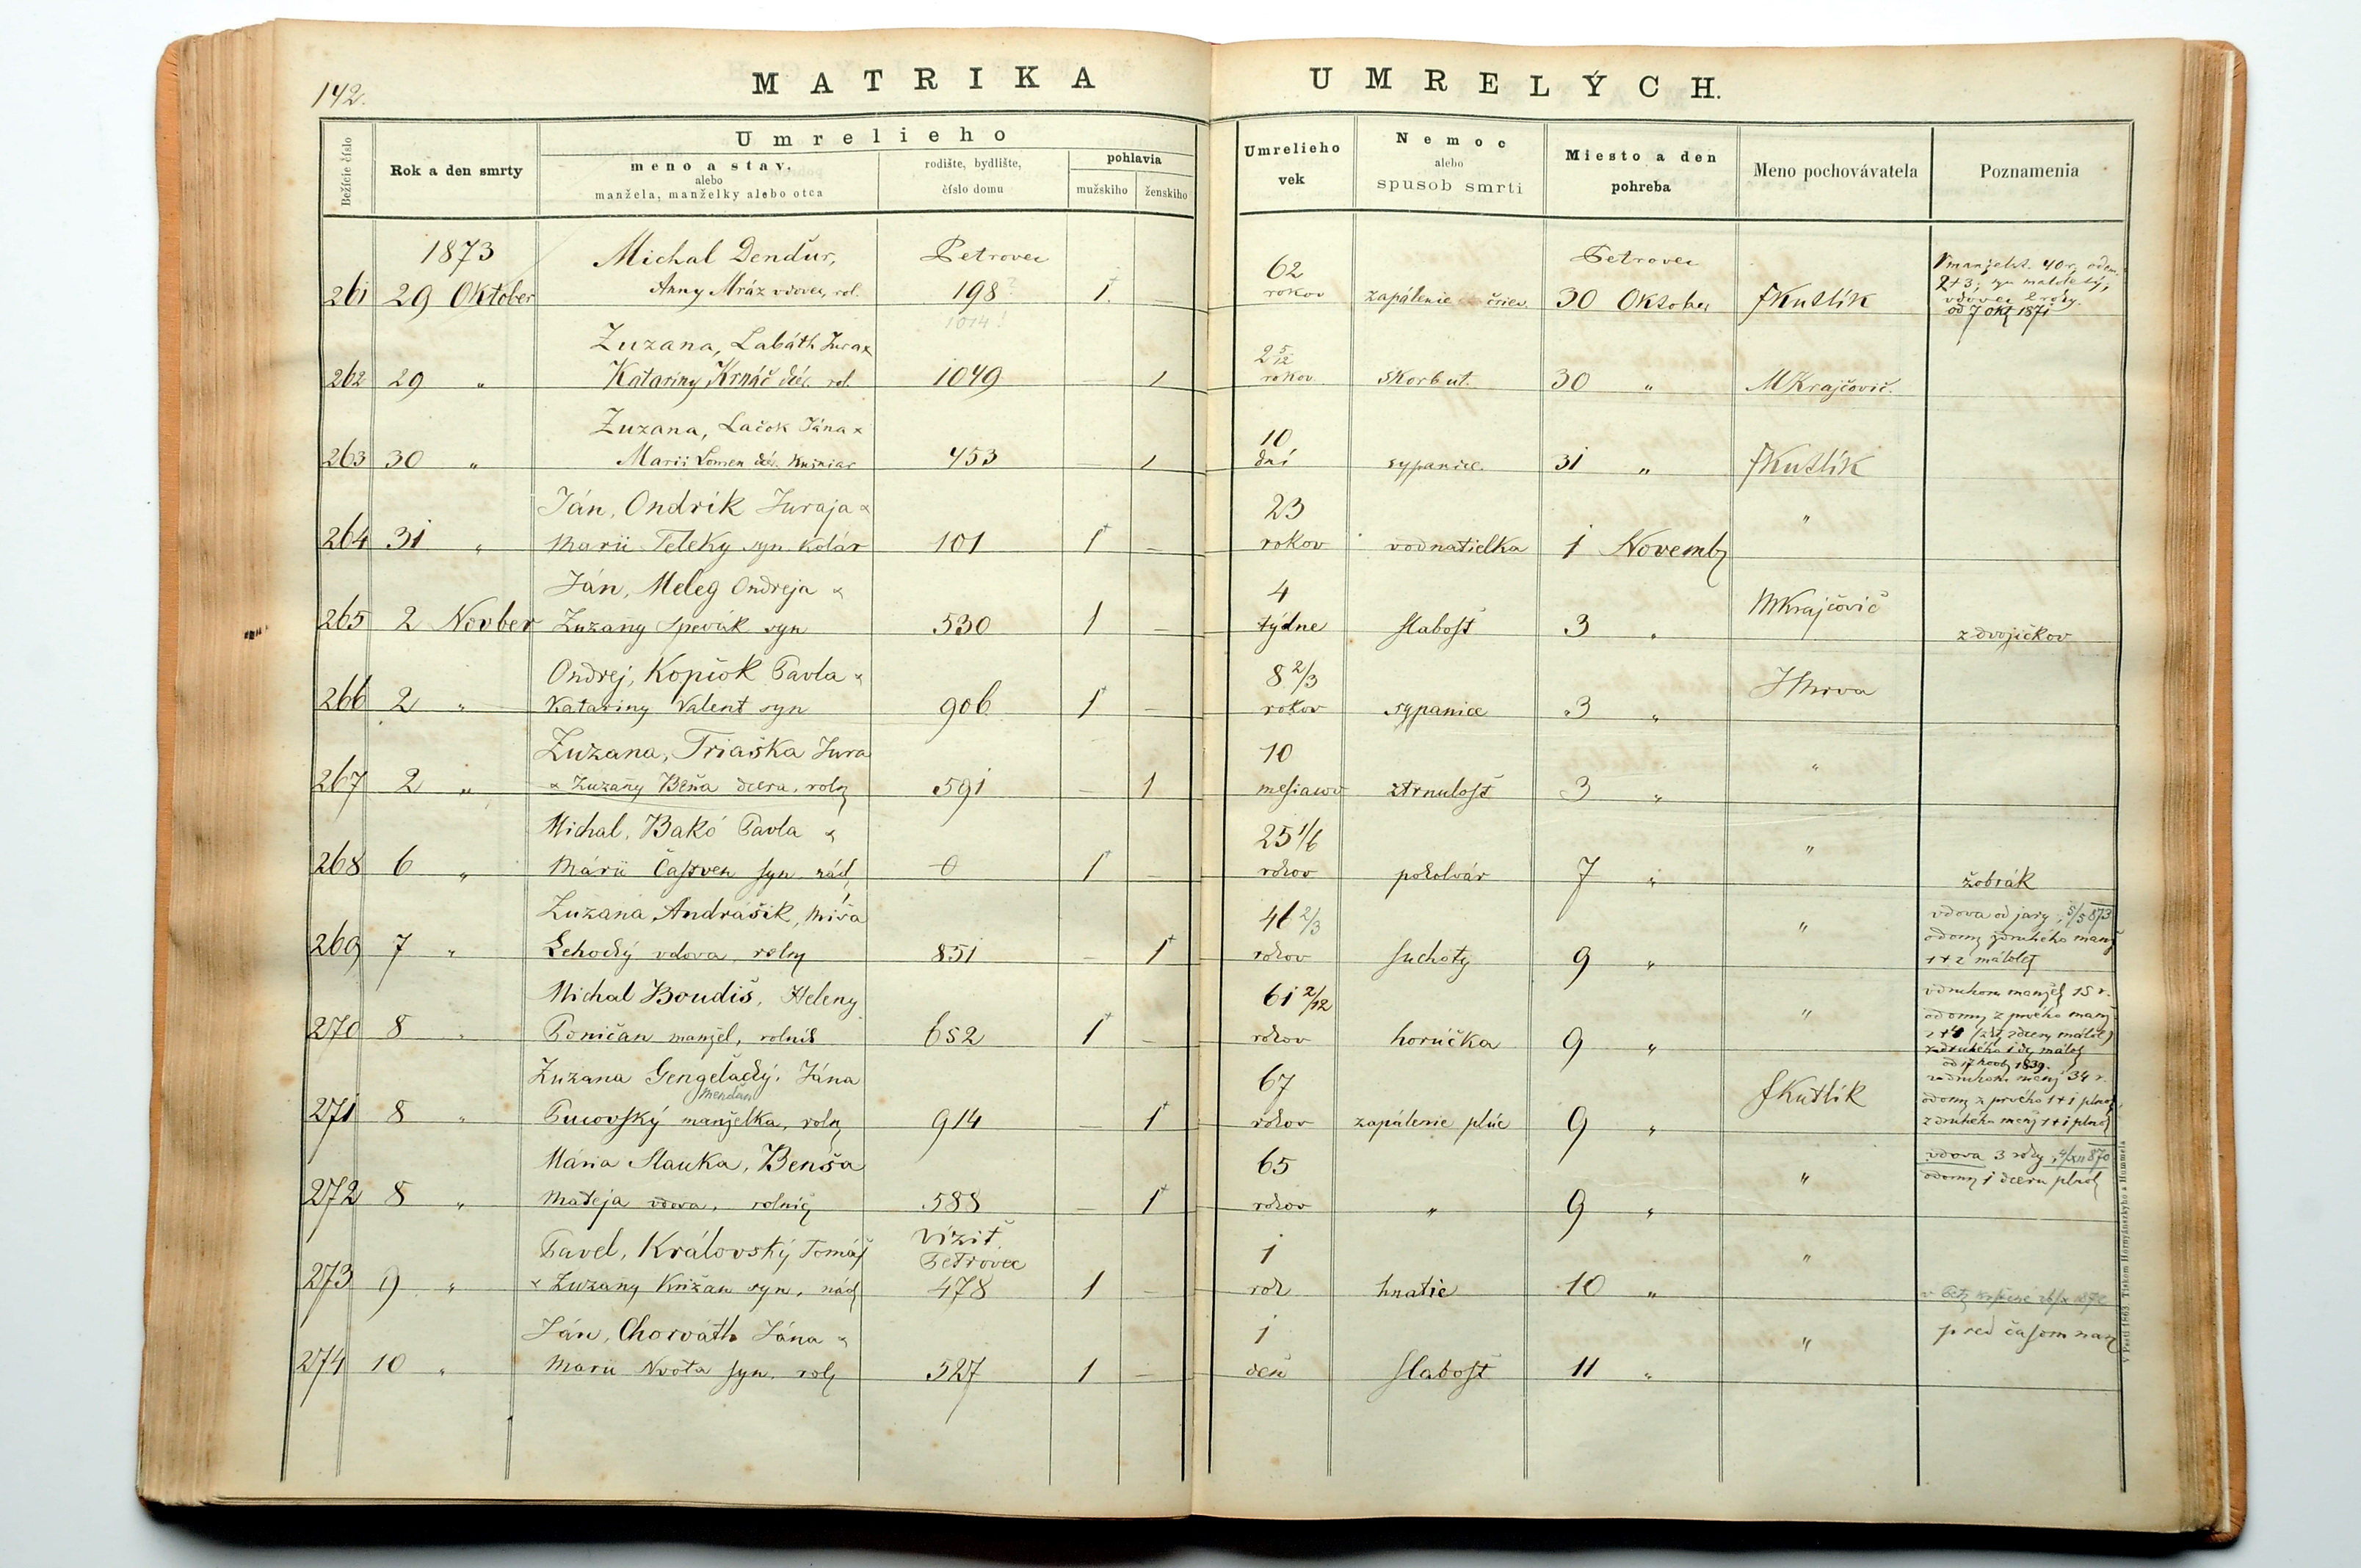 142.
MATRIKA UMRELÝCH.
Bežície číslo
Rok a den smrty
Umrelieho
meno a stav,
alebo
manžela, manželky alebo otca
rodište, bydlište,
číslo domu
pohlavia
mužskiho
ženskiho
Umrelieho
vek
Nemoc
alebo
spusob smrti
Miesto a den
pohreba
Meno pochovávateľa
Poznamenia
1873
Michal Dendúr,
Petrovec
62
Petrovec
261 29 Oktober
Anny Mráz vdovec, rol.
198?
1
rokov
zapálenie čriev
30 Oktober
JKutlík
manželst. 40 r.
2+3;
vdovec 2 roky.
od 7 okt 1871
1014!
Zuzana, Labáth Jura &
2 5/12
262 29 "
Katariny Krnáč dcér. rol.
1049
— 1
rokov
skorbut.
30 "
MKrajčovič.
Zuzana, Lačok Jána &
10
263 30 "
Marii Lomen dcér. kušniar
453
— 1
dní
sypanice.
31 "
JKutlík
Ján, Ondrík Juraja &
23
264 31 "
Marii Teleky syn kolár
101
1 —
rokov
vodnatielka
1 Novemb
"
Ján, Meleg Ondreja &
4
265 2 Novber
Zuzany Spevák syn
530
1 —
týdne
slabosť
3 "
MKrajčovič
z dvojičkov
Ondrej, Kopčok Pavla &
8 2/3
266 2 "
Katariny Valent syn
906
1 —
rokov
sypanice
3 "
JMrva
Zuzana, Triaška Jura
10
267 2 "
& Zuzany Beňa dcera, roln
591
— 1
mesiacov
ztrnulosť
3 "
"
Michal, Bakó Pavla &
25 1/6
268 6 "
Márii Častven syn nád
0
1 —
rokov
pokolvár
7 "
"
žobrák
Zuzana Andrášik, Miša
46 2/3
269 7 "
Lehocký vdova, roln
851
— 1
rokov
suchoty
9 "
"
vdova od jary, 5/5 873
z druhého manž
1+2 málolet
Michal Boudiš, Heleny
61 2/12
270 8 "
Poničan manžel, rolník
652
1 —
rokov
horúčka
9 "
"
v druhom manžel 15 r.
z prvého manž
z druhého
1839.
Zuzana Gengeľacký. Jána
67
271 8 "
Pucovský manželka, roln
914
— 1
rokov
zapálenie plúc
9 "
JKutlík
v druhom manž 34 r.
z prvého 1+1 plnol
z druhého manž 1+1 plnol
Mária Slauka, Benša
65
272 8 "
Mateja vdova, rolnic
588
— 1
rokov
"
9 "
"
vdova 3 roky
1 dceru plnol
Pavel, Královský Tomáš
Vizit
Petrovec
1
273 9 "
& Zuzany Križan syn, nád
478
1 —
rok
hnatie
10 "
"
Ján, Chorváth Jána &
1
274 10 "
Marii Nvota syn, rol
527
1 —
deň
slabosť
11 "
"
pred časom nar
V Pešti 1863. Tiskom Hornyánszkyho a Hummela